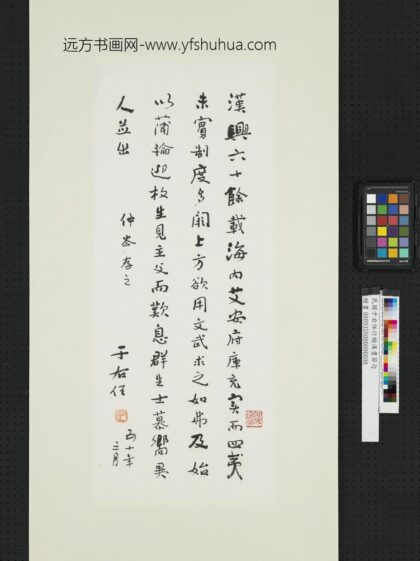 远方书画网-www.yfshuhua.com
漢興六十餘載海内艾安府庫充實而四夷
未賓制度多闕上方欲用文武求之如弗及始
以蒲輪迎枚生見主父而歎息群生士慕嚮異
人並出
仲岑存之
于右任
五十年
三月
民國于右任行楷漢書節句